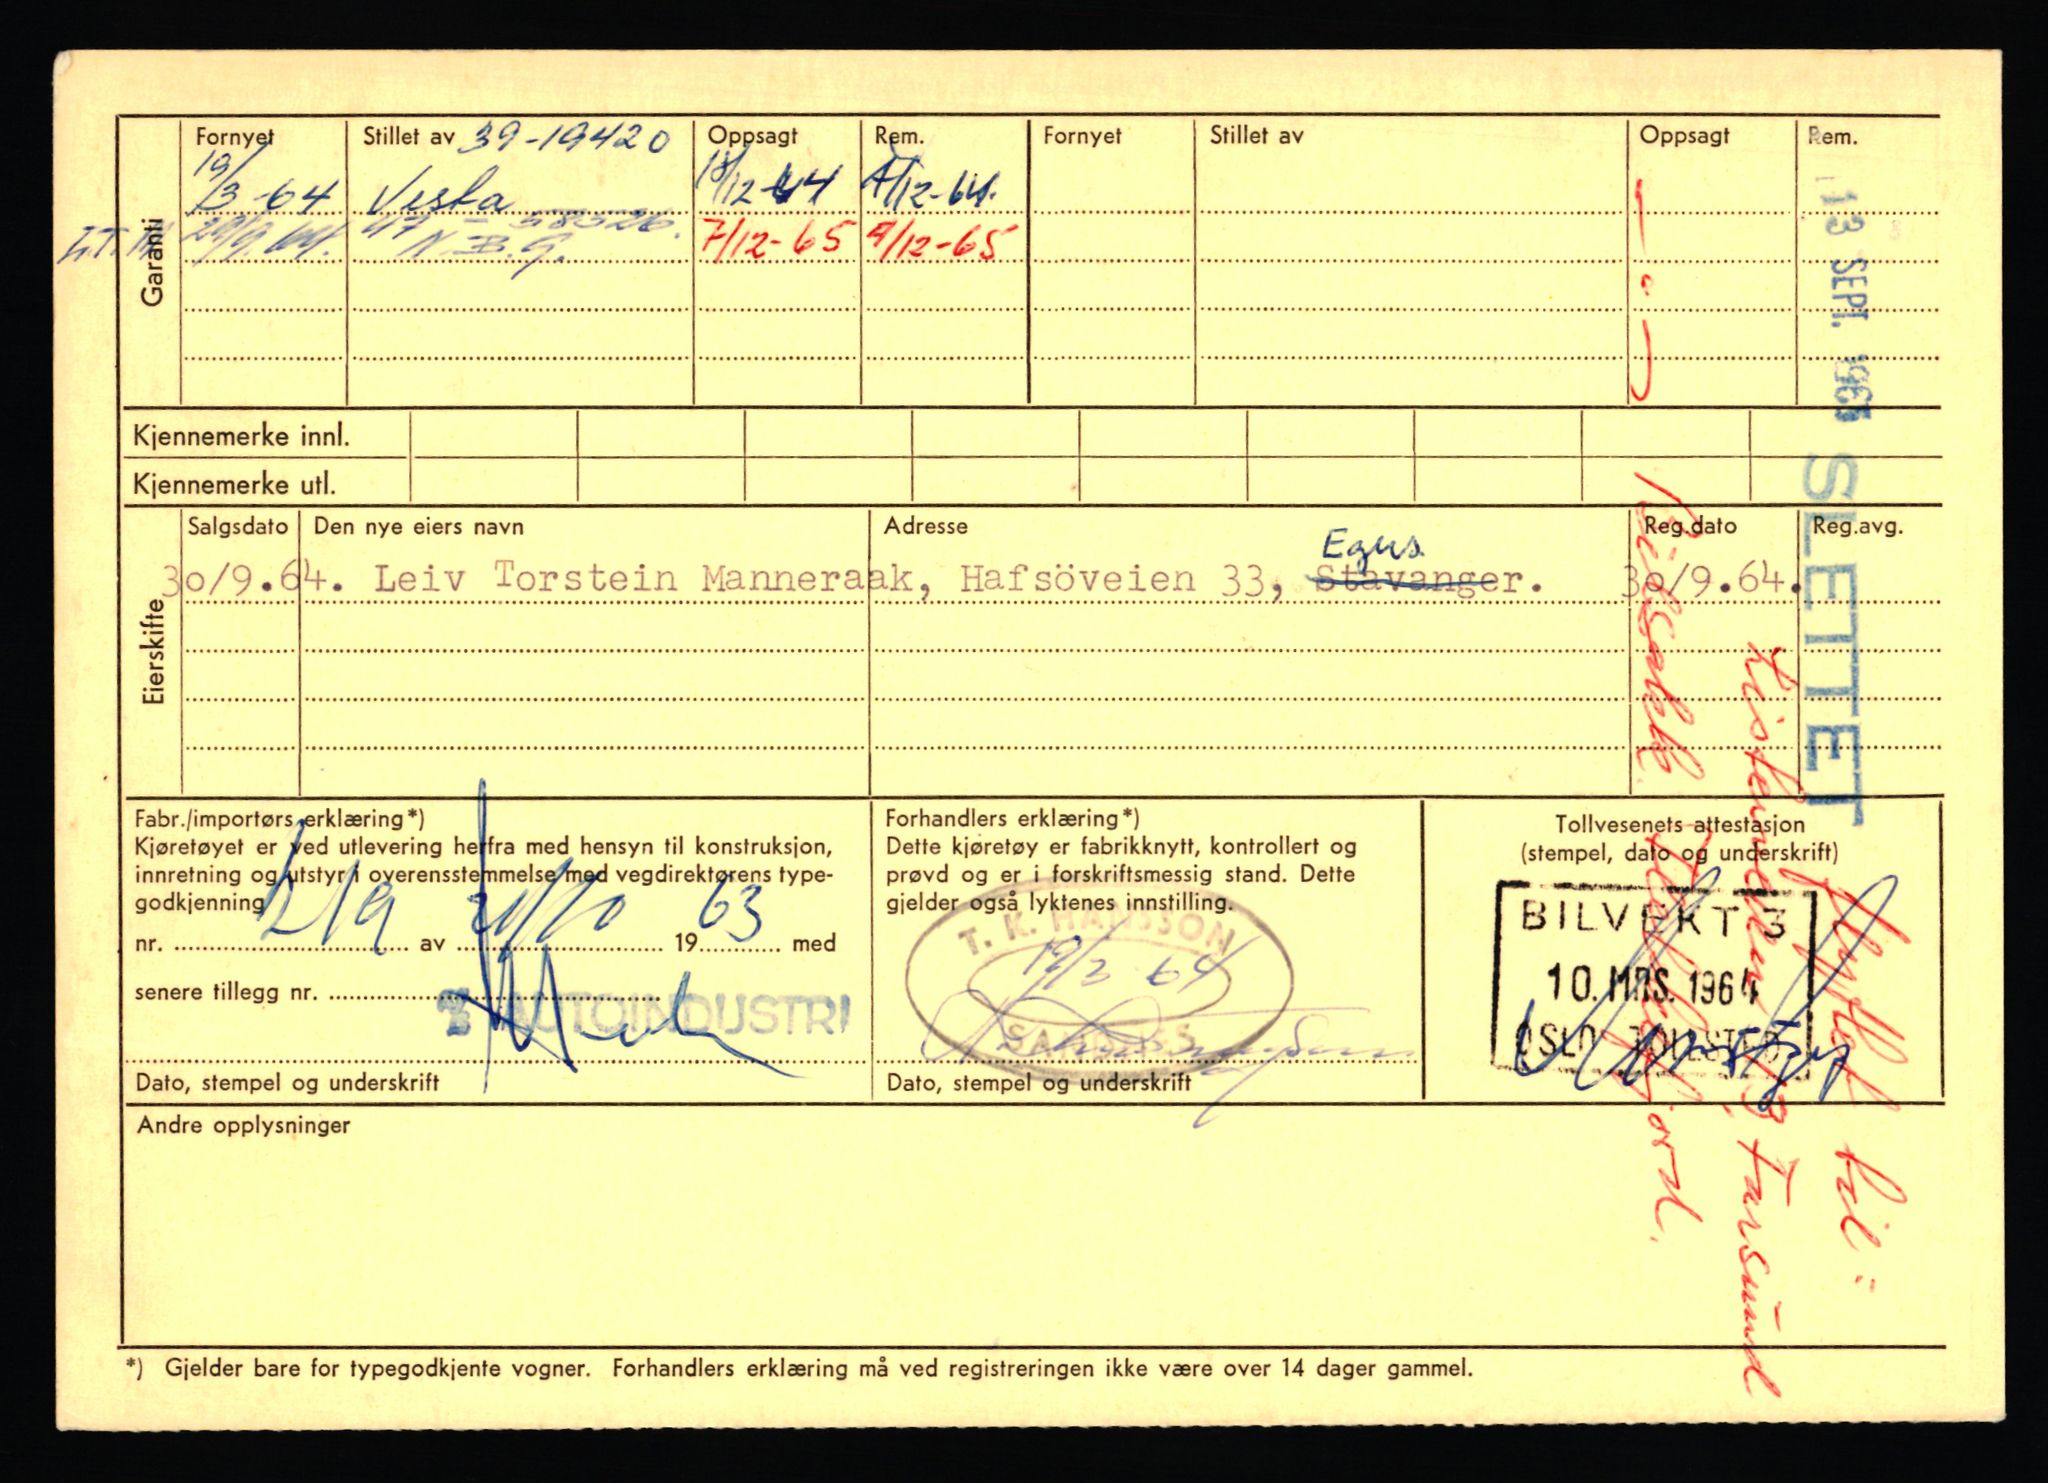 Garanti
Fornyet Stillet av 39-19420 Oppsagt Rem. Fornyet Stillet av Oppsagt Rem.
19/3-64 Vesta 18/12-64 /12-64.
29/9.64. 97 - 58526. 7/12-65 9/12-65
N.B.G.
Kjennemerke innl.
Kjennemerke utl.
Eierskifte
Salgsdato Den nye eiers navn Adresse Reg.dato Reg.avg.
Egers.
30/9.64. Leiv Torstein Manneraak, Hafsöveien 33, Stavanger. 30/9.64.
Fabr./importørs erklæring*)
Kjøretøyet er ved utlevering herfra med hensyn til konstruksjon,
innretning og utstyr i overensstemmelse med vegdirektørens type-
godkjenning
nr. av 19 63 med
senere tillegg nr.
AUTOINDUSTRI
Dato, stempel og underskrift
Forhandlers erklæring*)
Dette kjøretøy er fabrikknytt, kontrollert og
prøvd og er i forskriftsmessig stand. Dette
gjelder også lyktenes innstilling.
T. K. HANSSON
19/3 64
SANDNES
Dato, stempel og underskrift
Tollvesenets attestasjon
(stempel, dato og underskrift)
BILVEKT 3
10. MRS. 1964
OSLO TOLLSTED
Andre opplysninger
*) Gjelder bare for typegodkjente vogner. Forhandlers erklæring må ved registreringen ikke være over 14 dager gammel.
13 SEPT. 1965 SLETTET
flyttet til:
Farsund